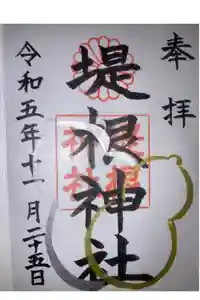 奉拝
堤根神社
令和五年十一月二十五日